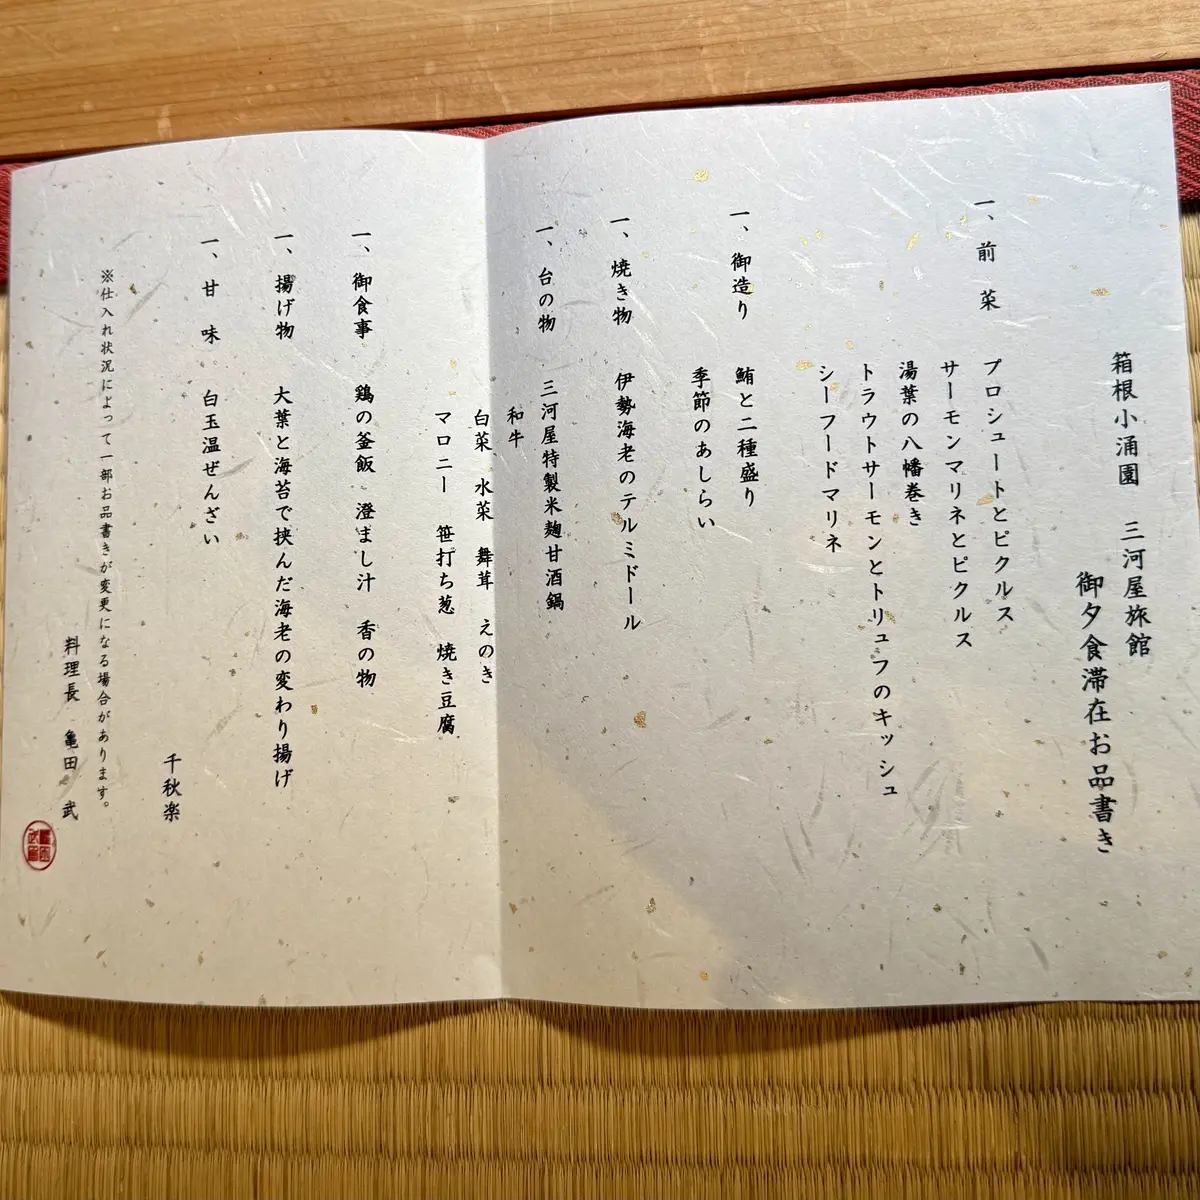 箱根小涌園 三河屋旅館
御夕食滞在お品書き
一、前 菜 プロシュートとピクルス
サーモンマリネとピクルス
湯葉の八幡巻き
トラウトサーモンとトリュフのキッシュ
シーフードマリネ
一、御造り 鮪と二種盛り
季節のあしらい
一、焼き物 伊勢海老のテルミドール
一、台の物 三河屋特製米麹甘酒鍋
和牛
白菜 水菜 舞茸 えのき
マロニー 笹打ち葱 焼き豆腐
一、御食事 鶏の釜飯 澄まし汁 香の物
一、揚げ物 大葉と海苔で挟んだ海老の変わり揚げ
一、甘 味 白玉温ぜんざい
千秋楽
※仕入れ状況によって一部お品書きが変更になる場合があります。
料理長 亀田 武